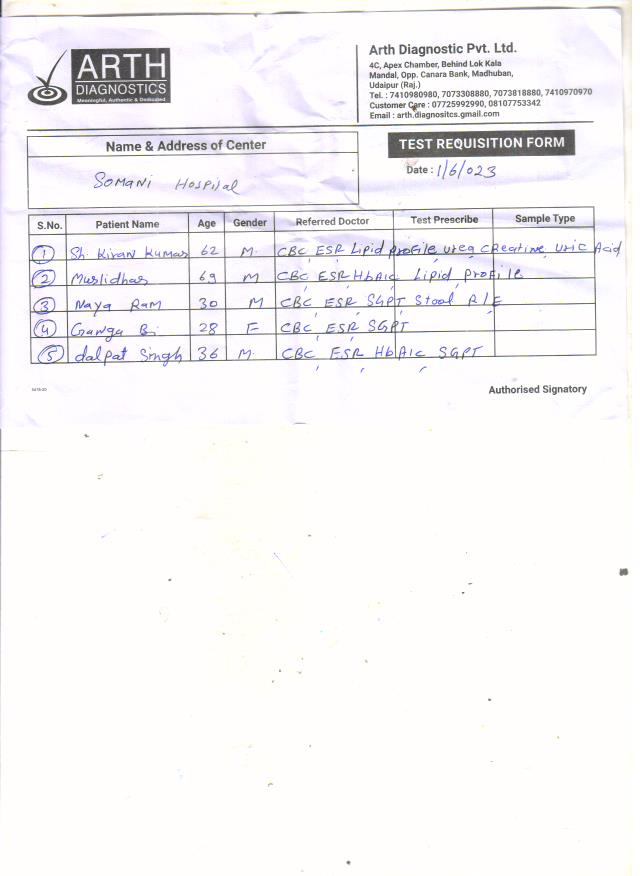 ARTH
DIAGNOSTICS
Meaningful, Authentic & Dedicated
Arth Diagnostic Pvt. Ltd.
4C, Apex Chamber, Behind Lok Kala
Mandal, Opp. Canara Bank, Madhuban,
Udaipur (Raj.)
Tel. : 7410980980, 7073308880, 7073818880, 7410970970
Customer Care : 07725992990, 08107753342
Email : arth.diagnositcs.gmail.com
Name & Address of Center
Somani Hospital
TEST REQUISITION FORM
Date : 1/6/023
S.No. Patient Name Age Gender Referred Doctor Test Prescribe Sample Type
1 Sh. Kiran Kumar 62 M. CBC ESR Lipid profile urea creatine uric Acid
2 Muslidhar 69 M CBC ESR HbA1c Lipid profile
3 Naya Ram 30 M CBC ESR SGPT Stool R/E
4 Ganga Bi 28 F CBC ESR SGPT
5 dalpat Singh 36 M. CBC ESR HbA1c SGPT
Authorised Signatory